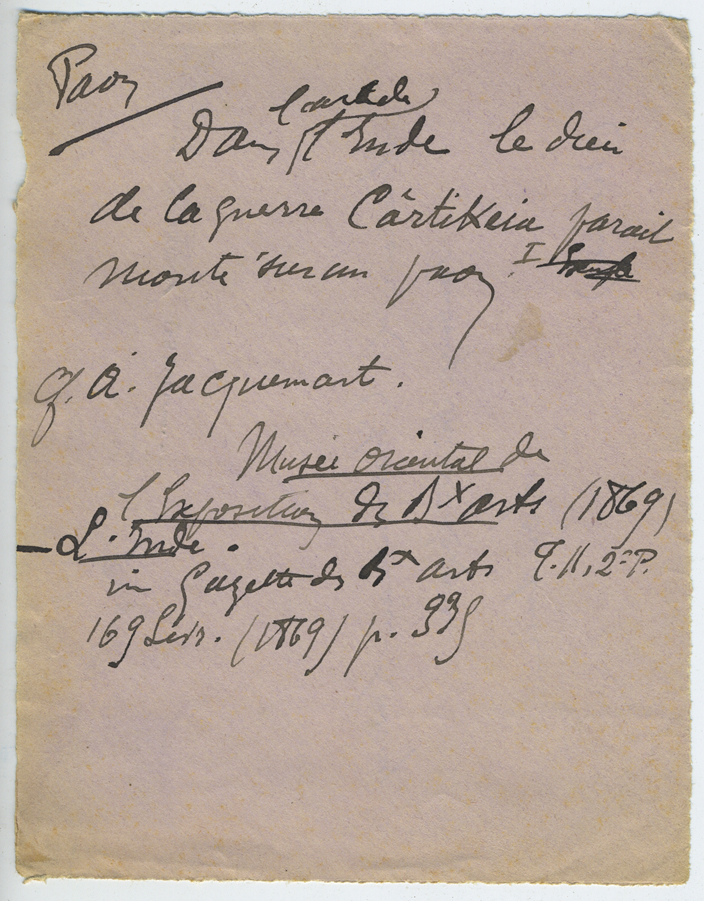 Paon
l'art de
Dans l'Inde le dieu
de la guerre Cârtikeia parait
monté sur un paon. I
cf. A. Jacquemart.
Musée oriental de
l'Exposition des Bx arts (1869)
— L'Inde.
in Gazette des Bx arts T. II, 2e P.
169 Livr. (1869) p. 339